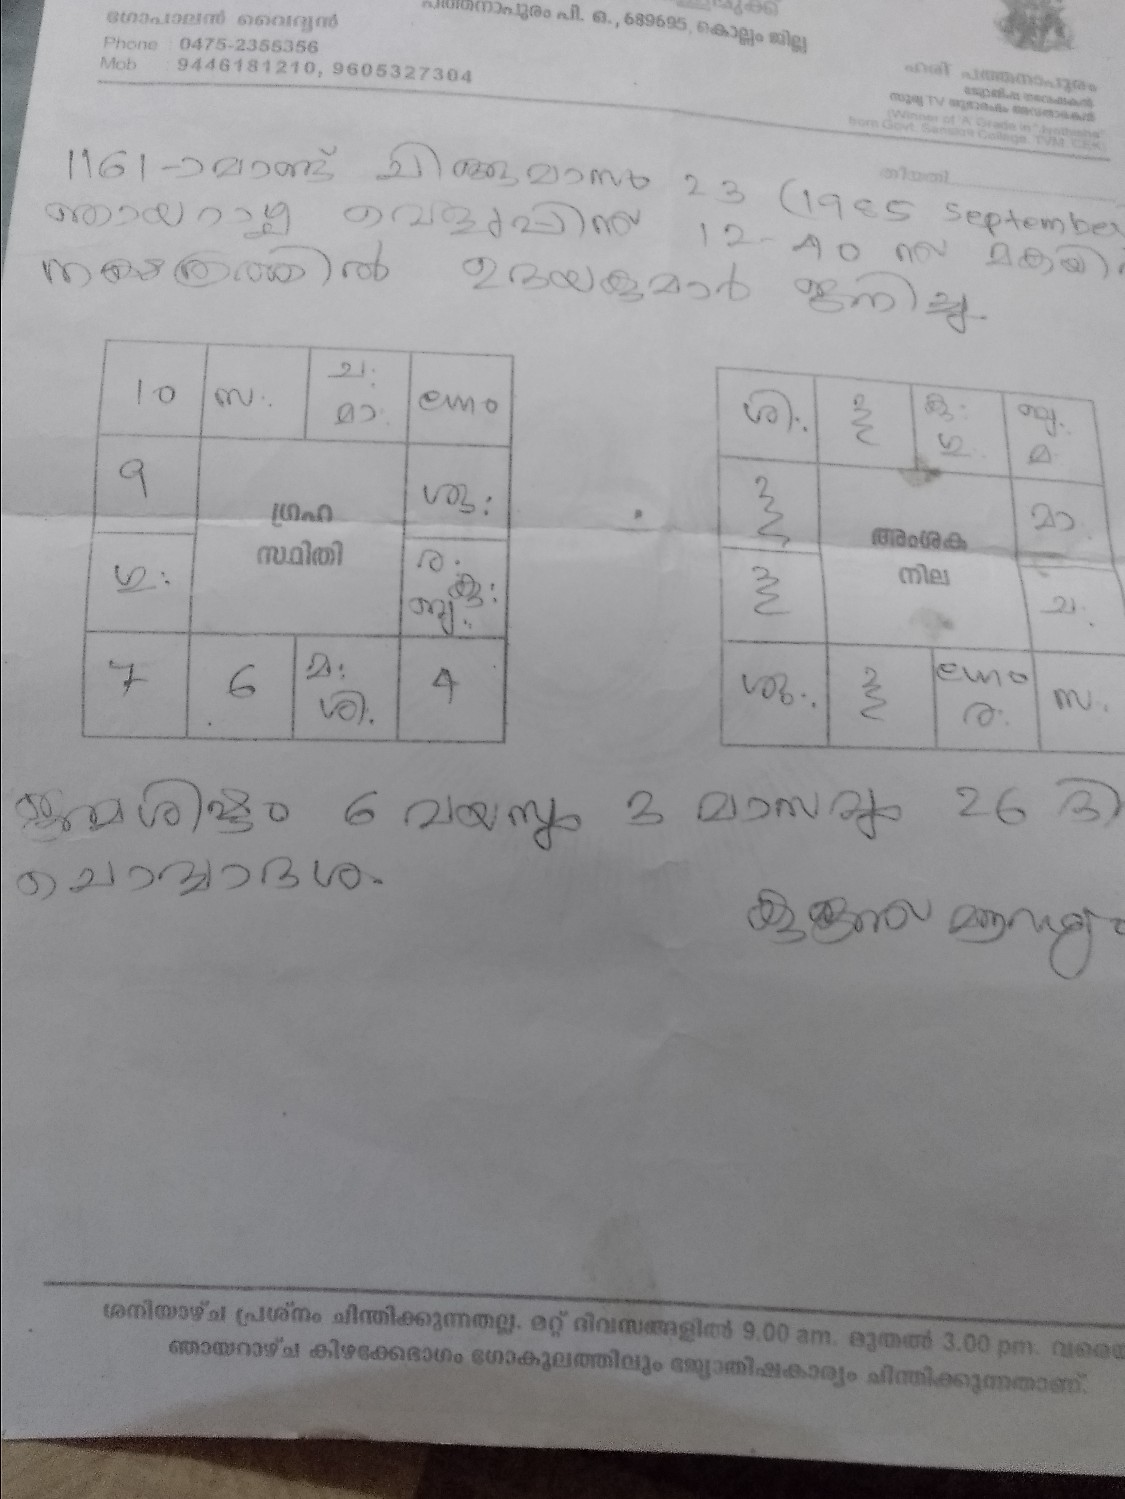 ഗോപാലൻ വൈദ്യൻ
Phone : 0475-2355356
Mob : 9446181210, 9605327304
പത്തനാപുരം പി. ഒ., 689695, കൊല്ലം ജില്ല
ഹരി പത്തനാപുരം
(Winner of 'A' Grade in "Jyothisha"
from Govt. Sanskrit College, TVM. CEK)
1161-ാമാണ്ട് ചിങ്ങമാസം 23 (1985 September
ഞായറാഴ്ച വെളുപ്പിന് 12-40 ന് മകയി
നക്ഷത്രത്തിൽ ഉദയകുമാർ ജനിച്ചു.
10 സ: ച: മാ: ലഗ്നം
9 ശു:
ഗ്രഹ
സ്ഥിതി
ഗു: ര: കു: ബു:
7 6 മ: ശി: 4
ശി: കു: ഗു: ബു: മ
മാ
അംശക
നില
ച:
ശു: ലഗ്നം ര: സ:
ജന്മശിഷ്ടം 6 വയസും 3 മാസവും 26 ദി
ചൊവ്വാദശ.
ശനിയാഴ്ച പ്രശ്നം ചിന്തിക്കുന്നതല്ല. മറ്റ് ദിവസങ്ങളിൽ 9.00 am. മുതൽ 3.00 pm. വരെയ
ഞായറാഴ്ച കിഴക്കേഭാഗം ഗോകുലത്തിലും ജ്യോതിഷകാര്യം ചിന്തിക്കുന്നതാണ്.